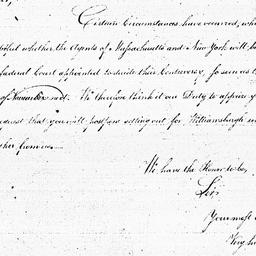 Certain Circumstances have occurred, whi
whether the Agents of Massachusetts and New York will b
Federal Court appointed to decide their Controversy, so soon as t
of November next. We therefore think it our Duty to apprize y
request that you will postpone setting out for Williamsburgh un
ther from us
We have the Honor to be,
Sir,
Your most
Very hu